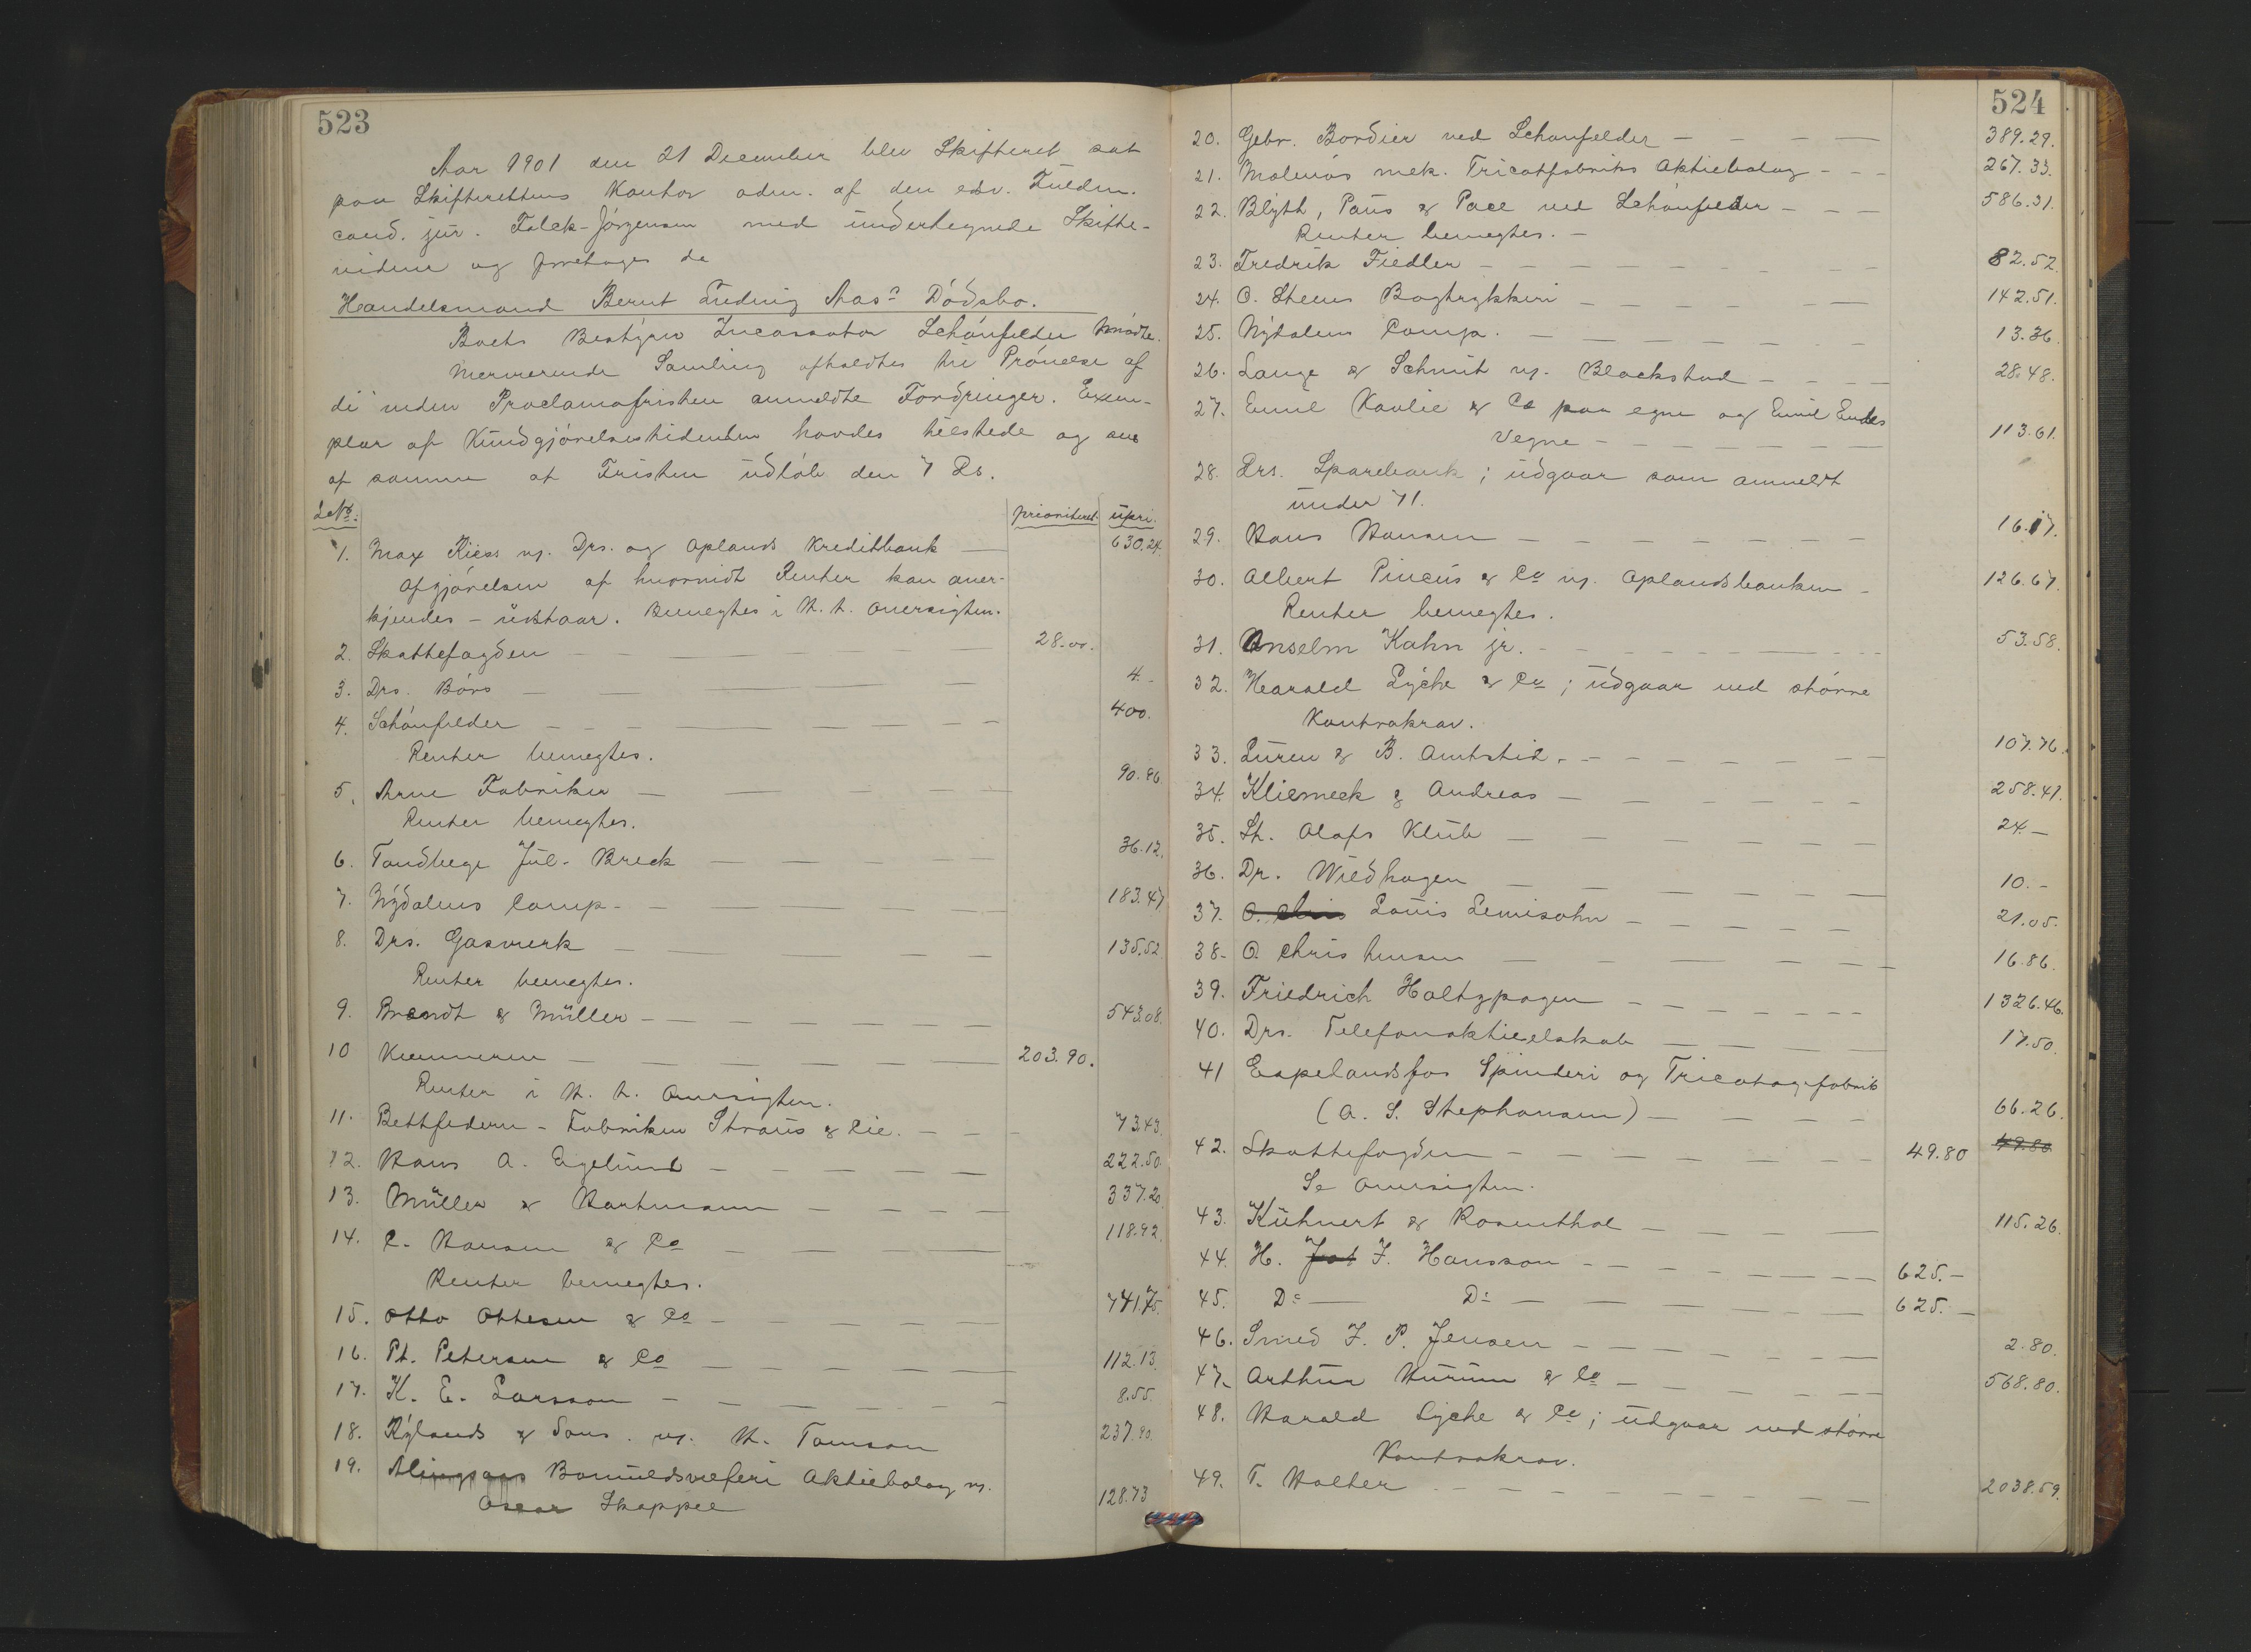 523
Aar 1901 den 21 December blev Skifteret sat
paa Skifterettens Kontor adm. af den edsv. Fuldm.
cand. jur. Falck-Jörgensen med undertegnede Skifte-
vidner og foretoges da
Handelsmand Bernt Ludvig Aas's Dödsbo.
Boets Bestyrer Incassator Schönfelder mödte.
Nærværende Samling afholdtes til Prövelse af
de inden Proclamafristen anmeldte Fordringer. Exem-
plar af Kundgjörelsestidenden havdes tilstede og saaes
af samme at Fristen udlöb den 7 Ds.
LNo: prioriteret. upri.
1. Max Riess v. Drs. og Oplands Kreditbank — 630.24.
Afgjörelsen af hvorvidt Renter kan aner-
kjendes – udstaar. Benegtes i H. t. Oversigten.
2. Skattefogden — 28.00.
3. Drs. Börs — 4.-
4. Schönfelder — 400.
Renter benegtes.
5. Arne Fabriker — 90.86
Renter benegtes.
6. Tandlæge Jul. Breck — 36.12.
7. Nydalens Comp. — 183.47
8. Drs. Gasværk — 135.52
Renter benegtes.
9. Brandt & Müller — 543.08.
10 Kæmneren — 203.90.
Renter i H. t. Oversigten.
11. Bettfedern-Fabriken Straus & Cie. — 73.43.
12. Hans A. Egelund — 222.50.
13. Müller & Hartmann — 337.20.
14. C. Hansen & Co — 118.92.
Renter benegtes.
15. Otto Ottesen & Co — 741.75.
16. Pt. Petersen & Co — 112.13.
17. K. E. Larsson — 8.55.
18. Rylands & Sons v. H. Tomson 237.90.
19. Alingsaas Bomuldsvæferi Aktiebolag v.
Oscar Skappel 128.73
524
20. Gebr. Bordier ved Schönfelder — 389.29.
21. Malmös mek. Tricotfabriks Aktiebolag — 267.33.
22. Blyth, Paus & Pace ved Schönfelder — 586.31.
Renter benegtes. –
23. Fredrik Fiedler — 82.52.
24. O. Steens Bogtrykkeri — 142.51.
25. Nydalens Comp. — 13.36.
26. Lange & Schmit v. Blackstad — 28.48.
27. Emil Kavlie & Co paa egne og Emil Endes
Vegne — 113.61.
28. Drs. Sparebank; udgaar som anmeldt
under 71.
29. Hans Hansen — 16.17.
30. Albert Pincus & Co v. Oplandsbanken – 126.67.
Renter benegtes.
31. Anselm Kahn jr. — 53.58.
32. Harald Lyche & Co; udgaar ved större
Kontrakrav.
33. Buskerud Amtstid. — 107.76.
34. Kliemeck & Andreas — 258.41.
35. St. Olafs Klub — 24.—
36. Dr. Wiedhagen — 10.-
37. O. Chris Louis Lewisohn — 21.05.
38. O. Christensen — 16.86.
39. Friedrich Holtzpagen — 1326.46.
40. Drs. Telefonaktieselskab — 17.50.
41 Espelandsfos Spinderi og Tricotagefabrik
(A. S. Stephansen) — 66.26.
42. Skattefogden — 49.80 49.80
Se Oversigten.
43. Kühnert & Rosenthal — 115.26.
44. H. J. Hansson — 625.–
45. Do — Do — 625.–
46. Smed J. P. Jensen — 2.80.
47. Arthur Hurum & Co — 568.80.
48. Harald Lyche & Co; udgaar ved större
Kontrakrav.
49. T. Halter — 2038.59.